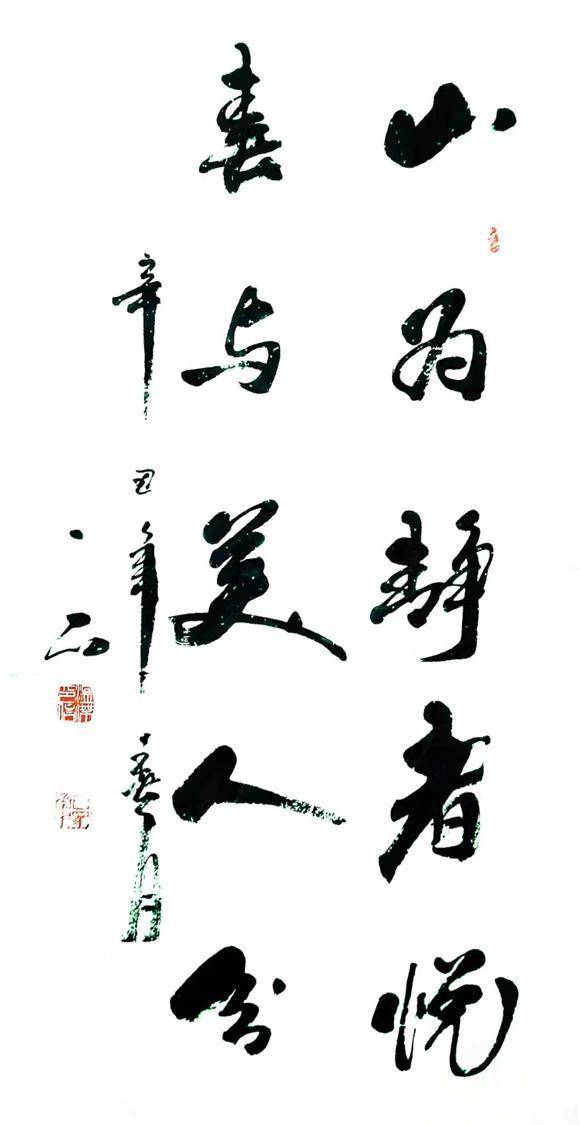 山为静者悦
春与美人分
辛丑年春月